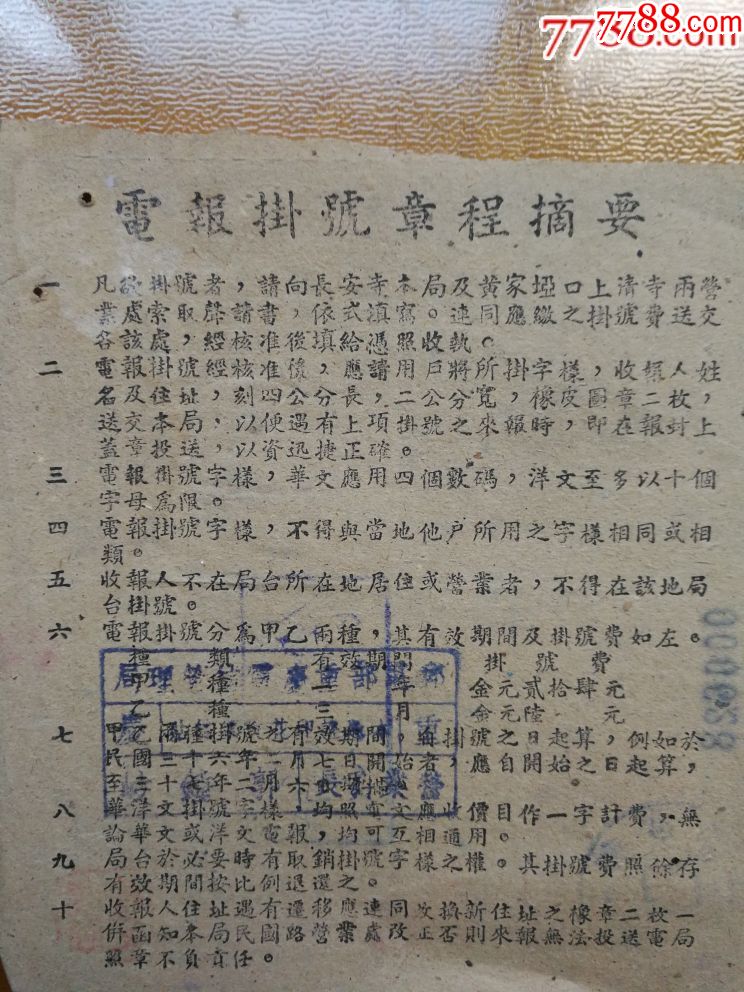 7788.com
7788.com
電報掛號章程摘要
一 凡欲掛號者，請向長安寺本局及黃家埡口上清寺兩營
業處索取聲請書，依式填寫。連同應繳之掛號費送交
各該處，經核准後填給憑照收執。
二 電報掛號經核准後，應請用戶將所掛字樣，收報人姓
名及住址，刻四公分長，二公分寬，橡皮圖章二枚，
送交本局，以便遇有上項掛號之來報時，即在報封上
蓋章投送，以資迅捷正確。
三 電報掛號字樣，華文應用四個數碼，洋文至多以十個
字母為限。
四 電報掛號字樣，不得與當地他戶所用之字樣相同或相
類。
五 收報人不在局台所在地居住或營業者，不得在該地局
台掛號。
六 電報掛號分為甲乙兩種，其有效期間及掛號費如左。
種類 有效期間 掛號費
甲種 一年 金元貳拾肆元
乙種 三月 金元陸元
七 甲乙兩種掛號有效期間，自掛號之日起算，例如於
民國三十六年
八 華洋文掛號字樣 照華文 應收價目作一字計費，無
論華文或洋文電報，均可互相通用。
九 局台於必要時有取銷掛號字樣之權。其掛號費照餘存
有效期間按比例退還之。
十 收報人住址遇有遷移應速同改換新住址之橡章二枚一
併函知本局民國路營業處改正否則來報無法投送電局
照章不負責任
000638